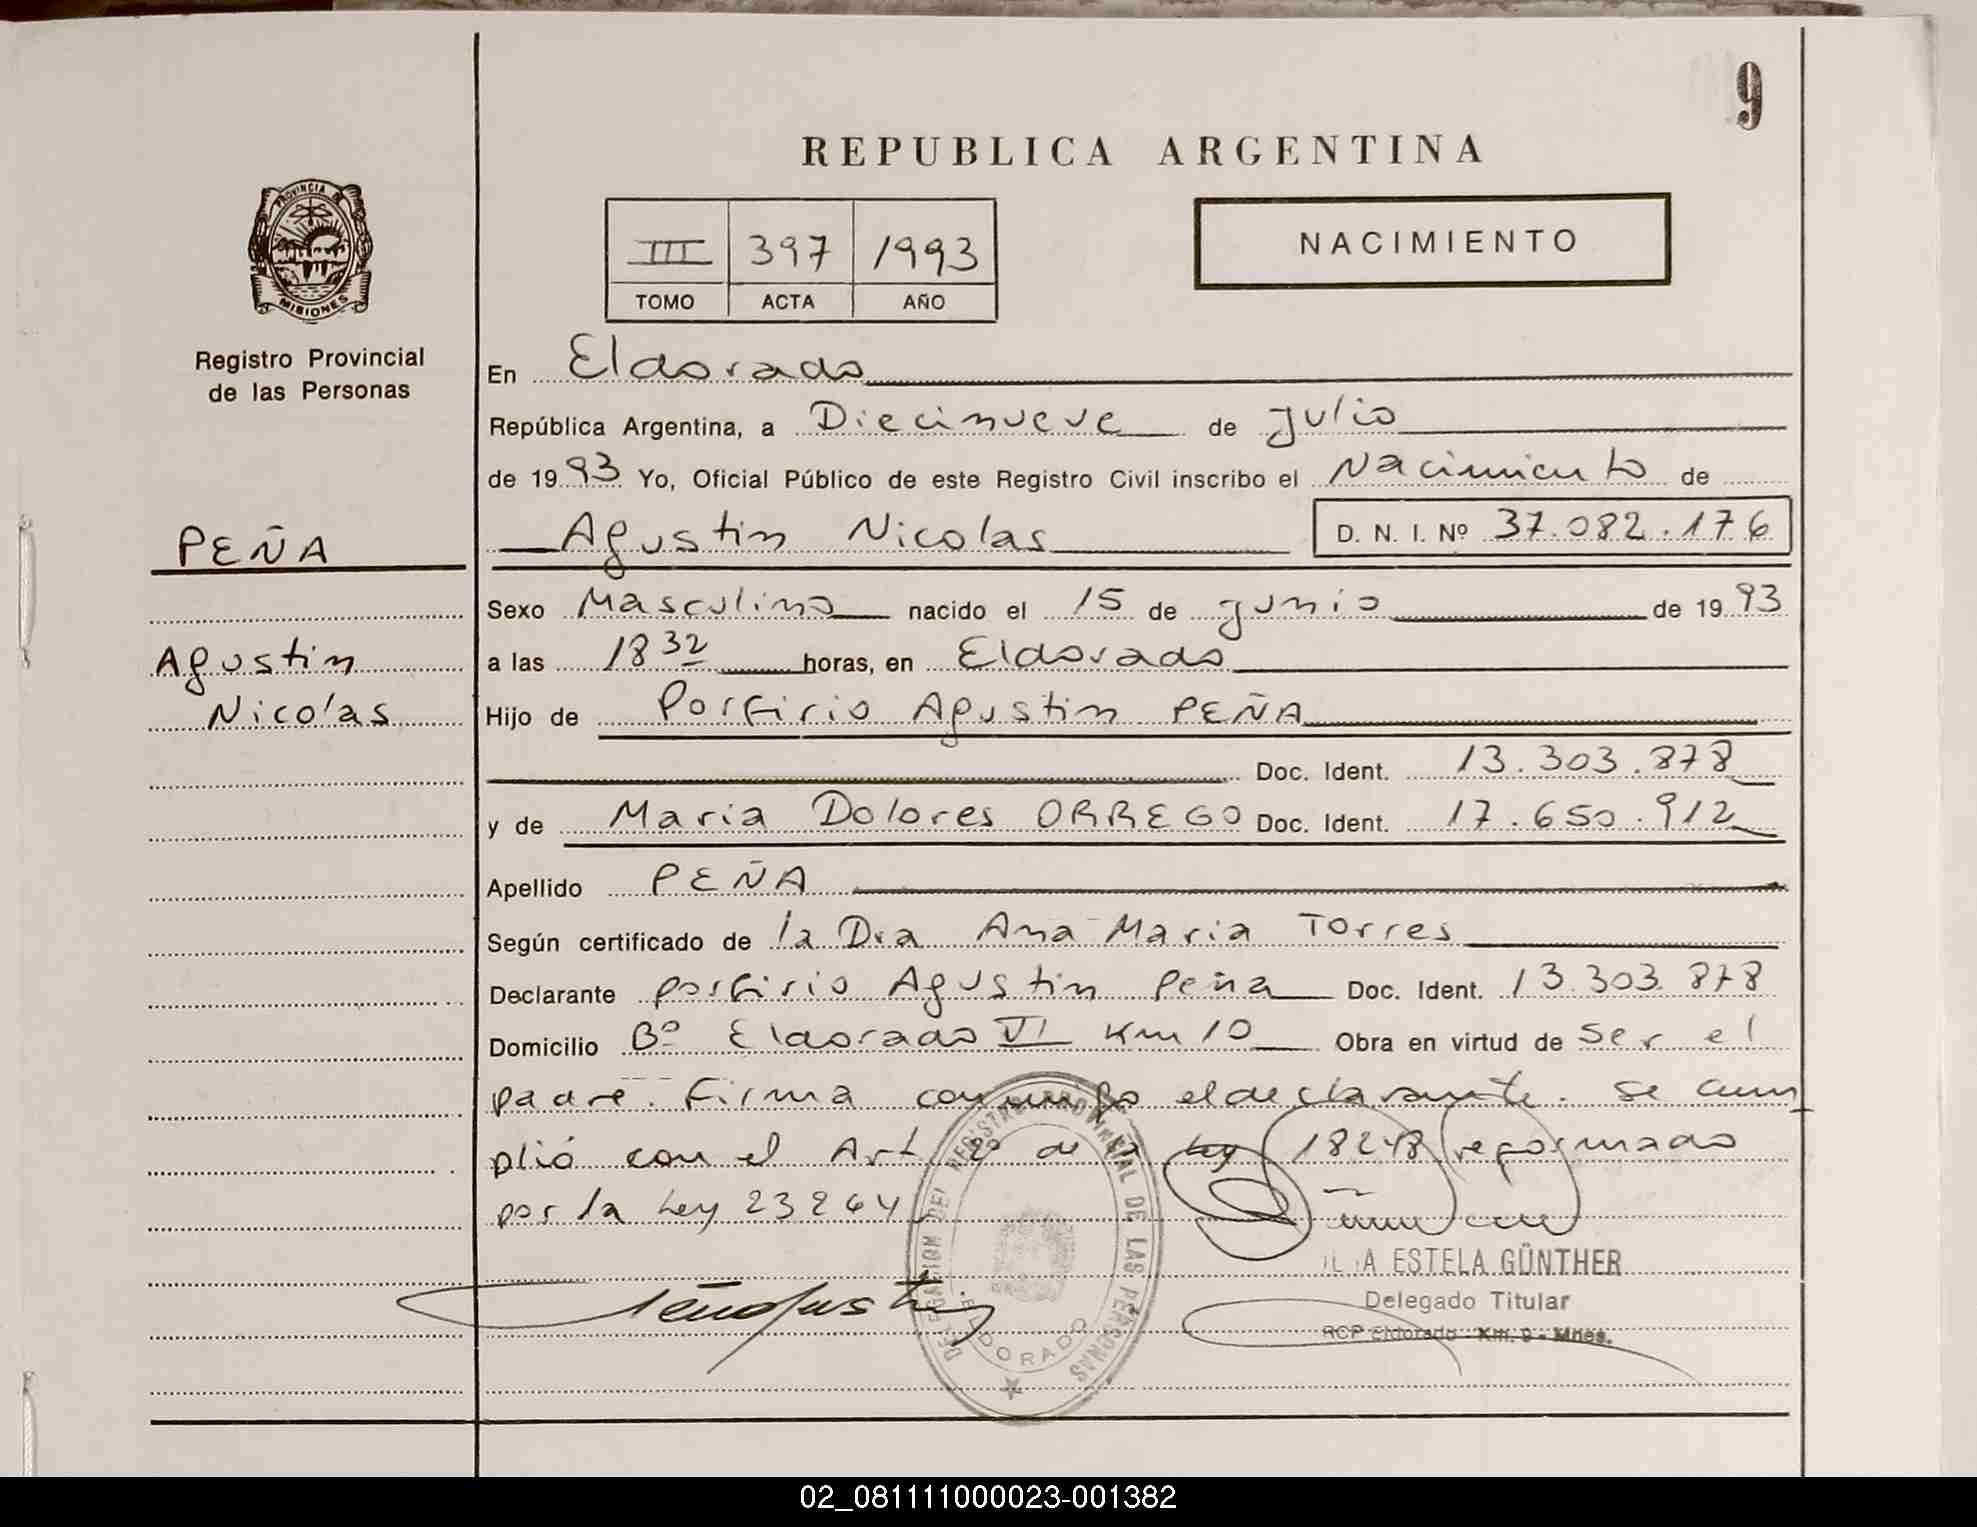 9
REPUBLICA ARGENTINA
PROVINCIA DE
MISIONES
Registro Provincial
de las Personas
III 397 1993
TOMO ACTA AÑO
NACIMIENTO
En Eldorado
República Argentina, a Diecinueve de julio
de 19 93 Yo, Oficial Público de este Registro Civil inscribo el Nacimiento de
PEÑA
Agustin Nicolas D. N. I. Nº 37.082.176
Sexo Masculino nacido el 15 de junio de 19 93
Agustin
Nicolas
a las 18 32 horas, en Eldorado
Hijo de Porfirio Agustin PEÑA
Doc. Ident. 13.303.878
y de Maria Dolores ORREGO Doc. Ident. 17.650.912
Apellido PEÑA
Según certificado de la Dra Ana Maria Torres
Declarante Porfirio Agustin Peña Doc. Ident. 13.303.878
Domicilio Bº Eldorado VI Km 10 Obra en virtud de Ser el
padre. Firma conmigo el declarante. Se cum
plió con el Art 2º de la Ley 18248 reformado
por la Ley 23264
DELEGACION DEL REGISTRO PROVINCIAL DE LAS PERSONAS
ELDORADO
ESTELA GÜNTHER
Delegado Titular
RCP Eldorado - Km. 9 - Mnes.
02_081111000023-001382